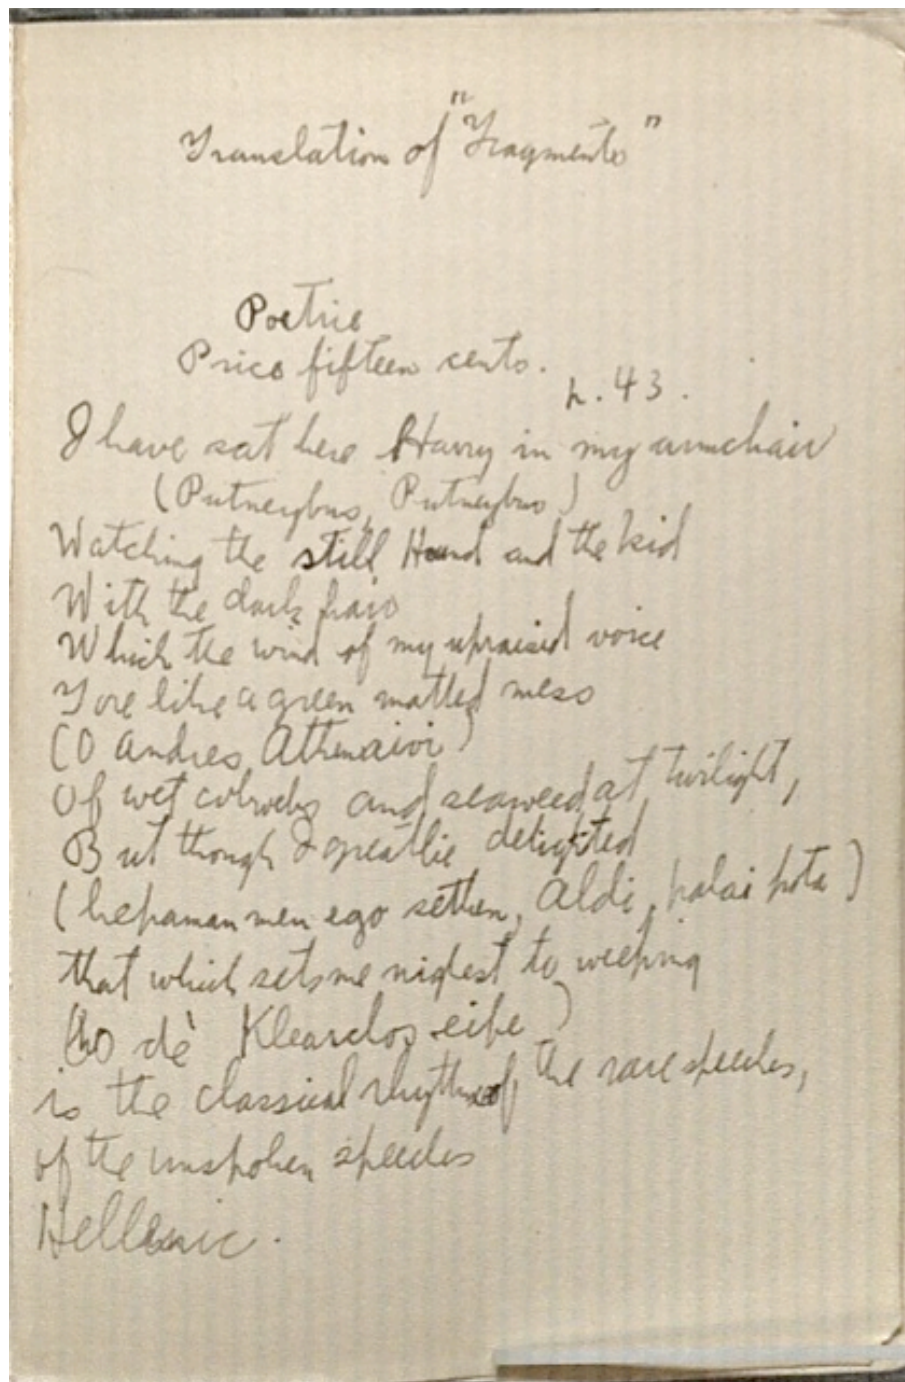 Translation of "Fragments"
Poetrie
Price fifteen cents.
p. 43.
I have sat here Harry in my armchair
(Putneybus, Putneybus)
Watching the still Hound and the kid
With the dark hair
Which the wind of my upraised voice
Tore like a green matted mess
(O andres Athenaioi)
Of wet cobwebs and seaweed at twilight,
But though I greatlie delighted
(hepaman men ego sethen, Aldi, palai pota)
that which sets me nighest to weeping
(ho dè Klearchos eipe)
is the classical rhythm of the rare speeches,
of the unspoken speeches
Hellenic.